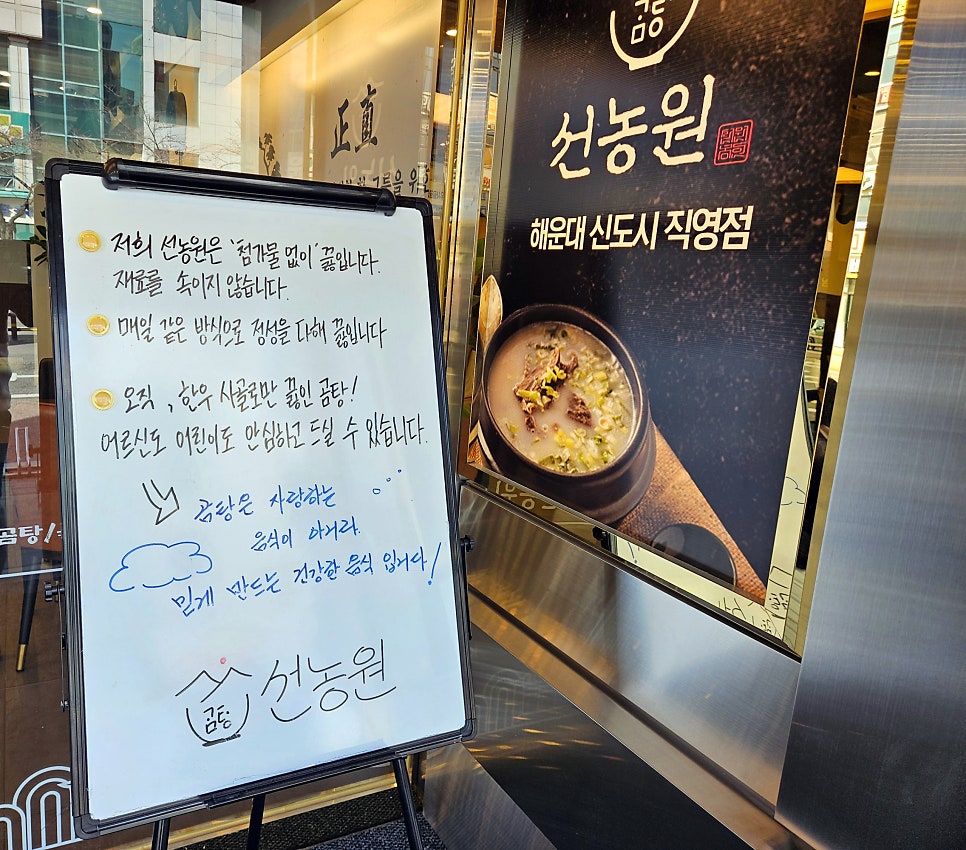 저희 선농원은 '첨가물 없이' 끓입니다.
재료를 속이지 않습니다.
매일 같은 방식으로 정성을 다해 끓입니다
오직, 한우 사골로만 끓인 곰탕!
어르신도 어린이도 안심하고 드실 수 있습니다.
곰탕은 사랑하는
음식이 아니라.
믿게 만드는 건강한 음식 입니다!
곰탕
선농원
正直
곰탕
선농원
해운대 신도시 직영점
곰탕/